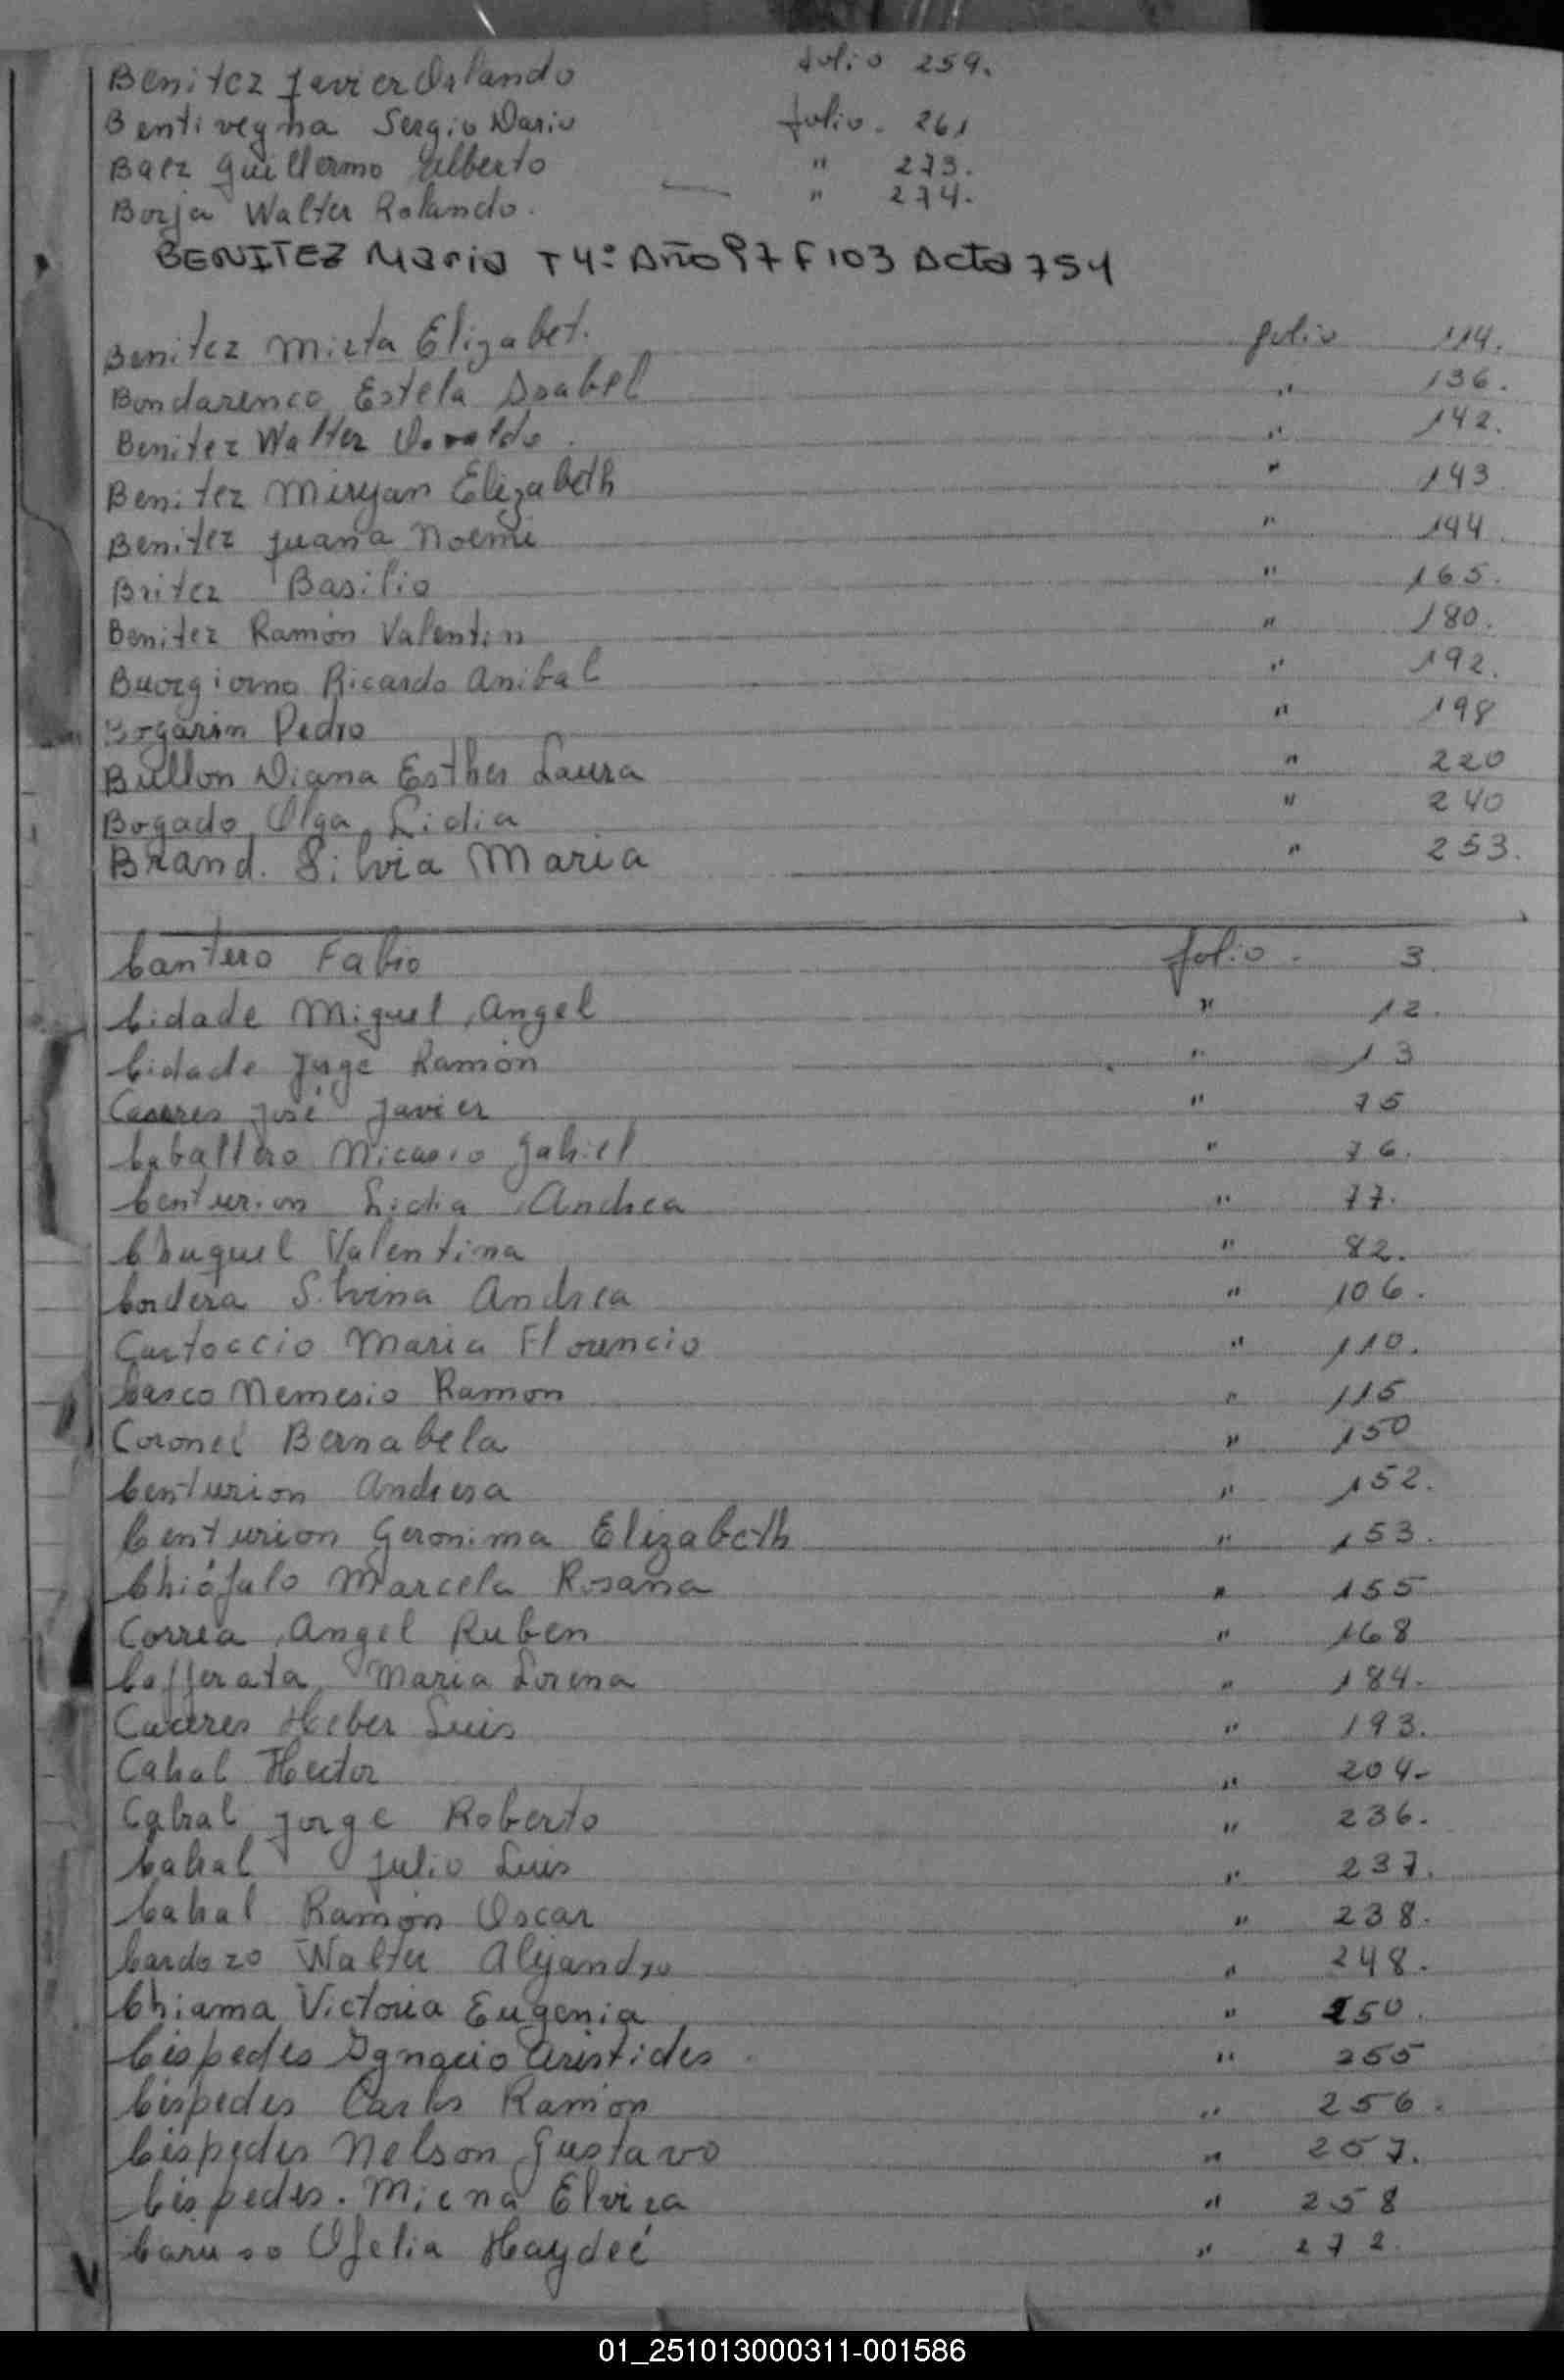 Benitez Javier Orlando folio 259.
Bentivegna Sergio Dario folio. 261
Baez Guillermo Alberto " 273.
Borja Walter Rolando. " 274.
BENITEZ Maria T4º Año 97 F 103 Acta 754
Benitez Mirta Elizabet. folio 114.
Bondarenco Estela Isabel " 136.
Benitez Walter Osvaldo. " 142.
Benitez Miryan Elizabeth " 143
Benitez Juana Noemi " 144.
Britez Basilio " 165.
Benitez Ramón Valentin " 180.
Buorgiorno Ricardo Anibal " 192.
Bogarin Pedro " 198
Bullon Diana Esther Laura " 220
Bogado, Olga Lidia " 240
Brand. Silvia Maria " 253.
Cantero Fabio folio. 3.
Cidade Miguel Angel " 12.
Cidade Jorge Ramón " 13
Caseres José Javier " 75
Caballero Nicasio Gabriel " 76.
Centurion Lidia Andrea " 77.
Chuquel Valentina " 82.
Cordera Silvina Andrea " 106.
Cartoccio Maria Florencio " 110.
Casco Nemesio Ramon " 115
Coronel Bernabela " 150
Centurion Andresa " 152.
Centurion Geronima Elizabeth " 153.
Chiófalo Marcela Rosana " 155
Correa Angel Ruben " 168
Cafferata Maria Lorena " 184.
Caceres Heber Luis " 193.
Cabral Hector " 204-
Cabral Jorge Roberto " 236.
Cabral Julio Luis " 237.
Cabral Ramón Oscar " 238.
Cardozo Walter Alejandro " 248.
Chiama Victoria Eugenia " 250.
Céspedes Ignacio Aristides " 255
Céspedes Carlos Ramón " 256.
Céspedes Nelson Gustavo " 257.
Céspedes. Mirna Elvira " 258
Caruso Ofelia Haydeé " 272.
01_251013000311-001586